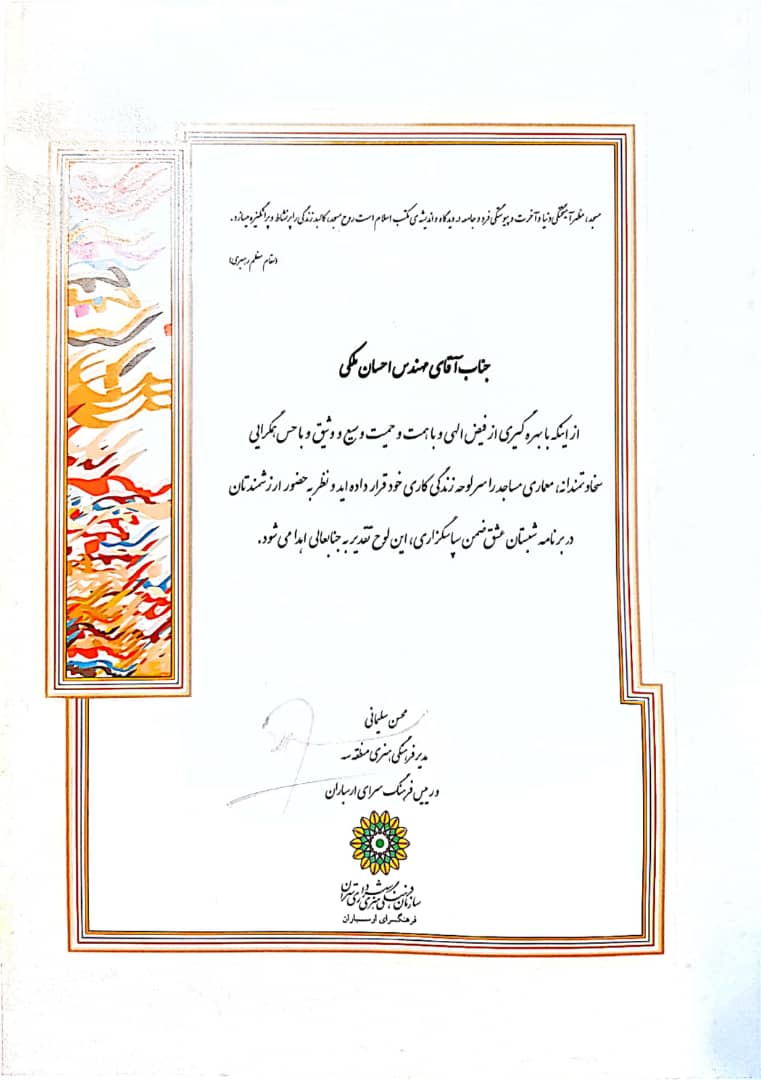 مسجد، مظهر آمیختگی دنیا و آخرت و پیوستگی فرد و جامعه در دیدگاه و اندیشه‌ی مکتب اسلام است روح مسجد، کالبد زندگی را پر نشاط و پر انگیزه میسازد.
(مقام معظم رهبری)
جناب آقای مهندس احسان ملکی
از اینکه با بهره گیری از فیض الهی و با همت و حمیت وسیع و وثیق و با حس همگرایی
سخاوتمندانه، معماری مساجد را سرلوحه زندگی کاری خود قرار داده اید و نظر به حضور ارزشمندتان
در برنامه شبستان عشق ضمن سپاسگزاری، این لوح تقدیر به جنابعالی اهدا می شود.
محسن سلیمانی
مدیر فرهنگی هنری منطقه سه
و رییس فرهنگ سرای ارسباران
سازمان فرهنگی هنری شهرداری تهران
فرهنگسرای ارسباران